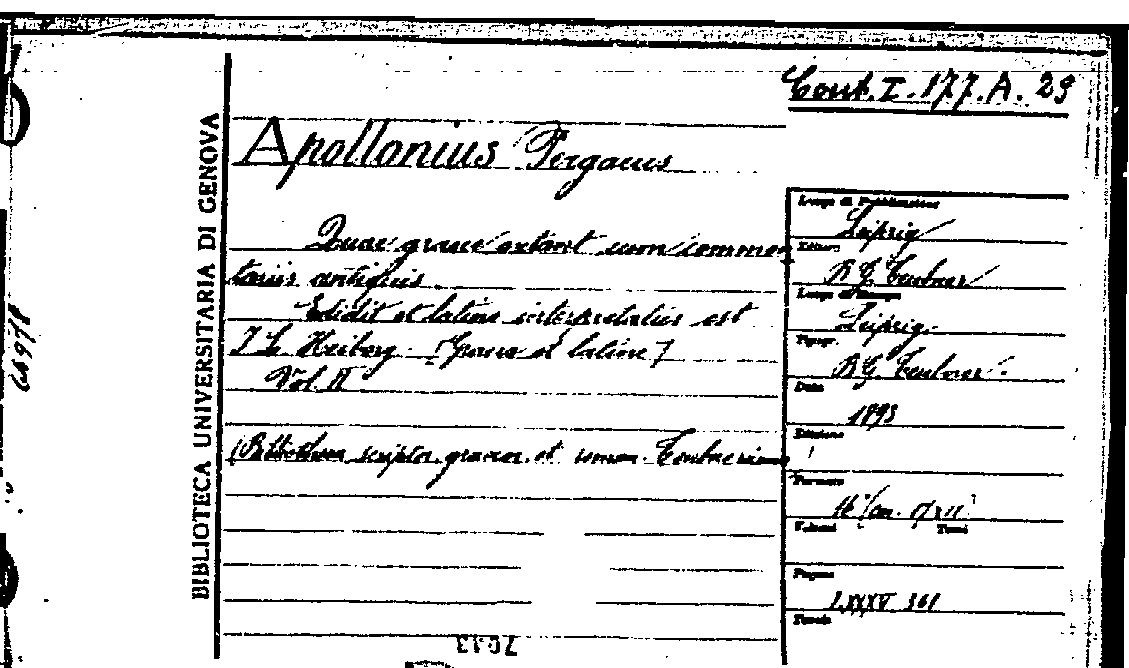 Cont. I. 177. A. 23
BIBLIOTECA UNIVERSITARIA DI GENOVA
Apollonius Pergaeus
Quae graece extant cum commen
tariis antiquis.
Edidit et latine interpretatus est
I L Heiberg. [Graece et latine]
Vol. II
(Bibliotheca scriptor. graecor. et roman. Teubneriana)
Luogo di Pubblicazione
Leipzig
Editore
B G Teubner
Luogo di Stampa
Leipzig.
Tipogr.
B.G. Teubner.
Data
1893
Edizione
Formato
16°/cm.
Volumi Tomi
Pagine
LXXXV 361
Tavole